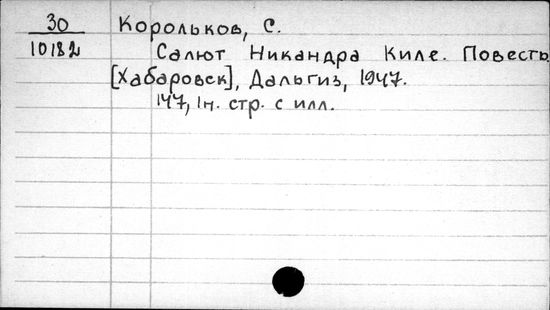 30
10182
Корольков, С.
Салют Никандра Киле. Повесть.
[Хабаровск], Дальгиз, 1947.
147, 1н. стр. с илл.